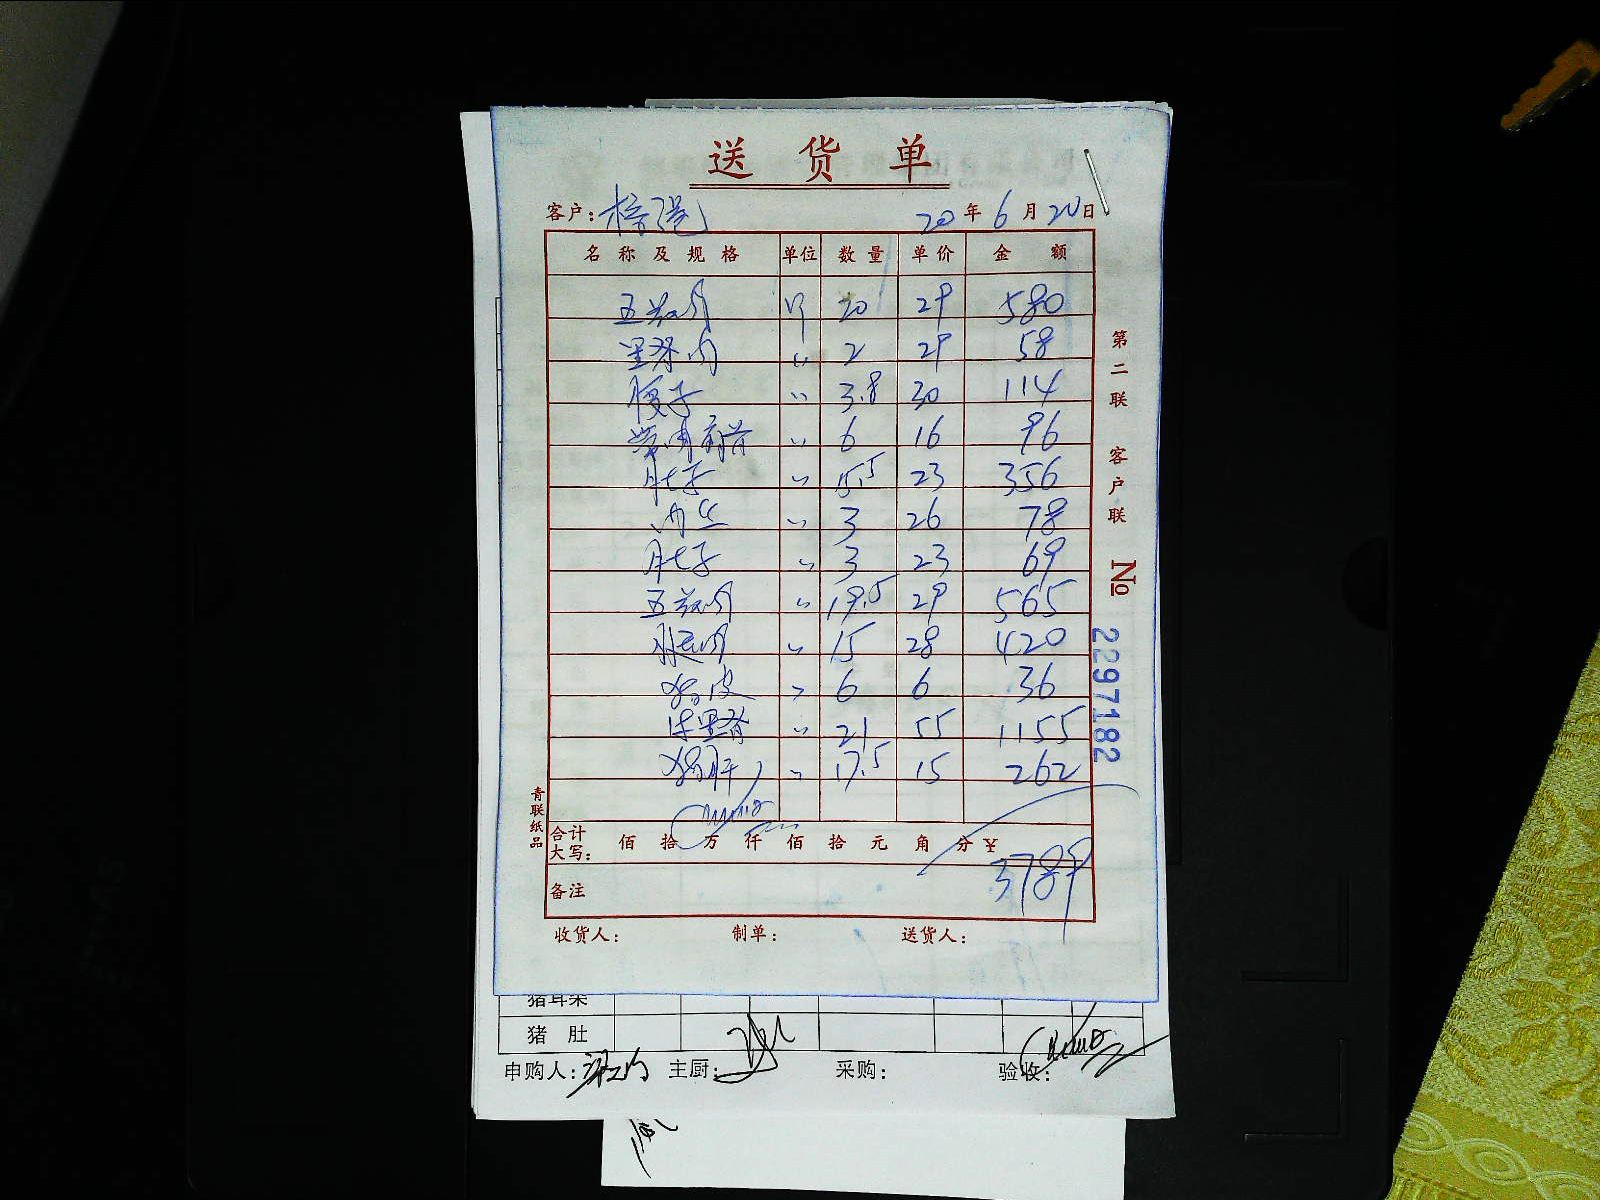 送货单
客户: 20年6月20日
名称及规格 单位 数量 单价 金额
五花肉 斤 20 29 580
里脊肉 〃 2 29 58
腰子 〃 3.8 30 114
带肉扇骨 〃 6 16 96
肚子 〃 15.5 23 356
肉丝 〃 3 26 78
肚子 〃 3 23 69
五花肉 〃 19.5 29 565
腿肉 〃 15 28 420
猪皮 〃 6 6 36
牛里脊 〃 21 55 1155
猪肝 〃 17.5 15 262
合计大写: 佰 拾 万 仟 佰 拾 元 角 分 ¥ 3789
备注
收货人: 制单: 送货人:
第二联 客户联 No 2297182
青联纸品
猪耳朵
猪肚
申购人: 主厨: 采购: 验收: